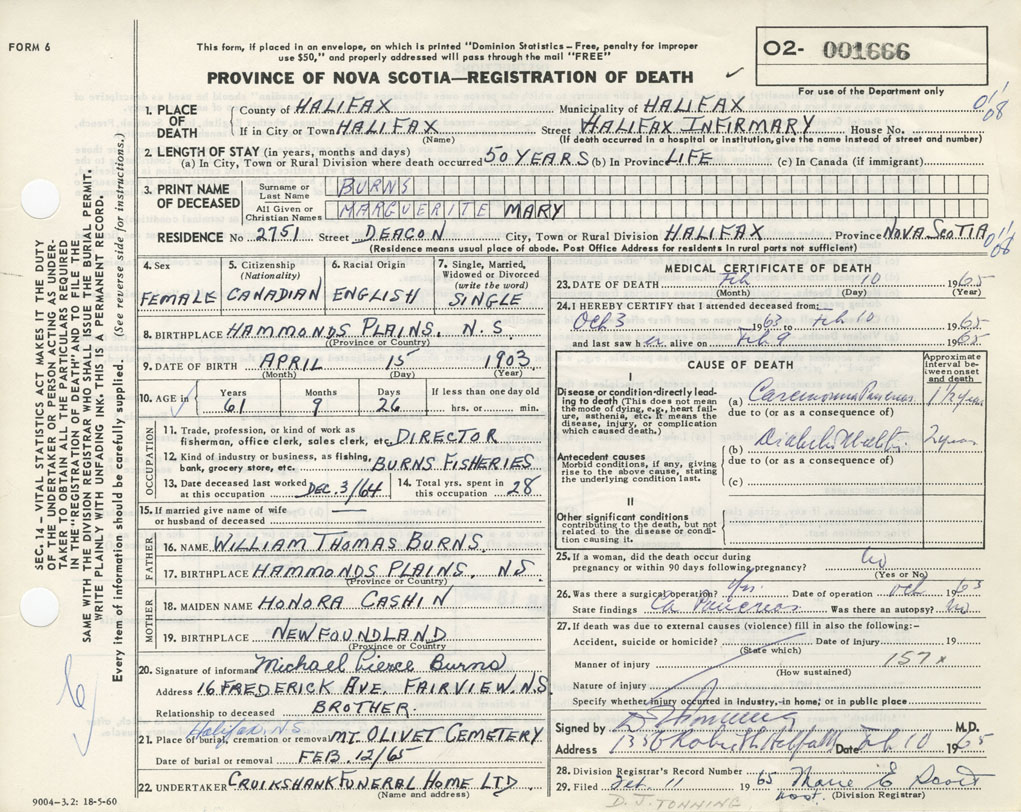 FORM 6
This form, if placed in an envelope, on which is printed "Dominion Statistics – Free, penalty for improper
use $50," and properly addressed will pass through the mail "FREE"
PROVINCE OF NOVA SCOTIA—REGISTRATION OF DEATH
O2- 001666
For use of the Department only
SEC. 14 – VITAL STATISTICS ACT MAKES IT THE DUTY
OF THE UNDERTAKER OR PERSON ACTING AS UNDER-
TAKER TO OBTAIN ALL THE PARTICULARS REQUIRED
IN THE "REGISTRATION OF DEATH" AND TO FILE THE
SAME WITH THE DIVISION REGISTRAR WHO SHALL ISSUE THE BURIAL PERMIT.
WRITE PLAINLY WITH UNFADING INK. THIS IS A PERMANENT RECORD.
Every item of information should be carefully supplied. (See reverse side for instructions.)
1. PLACE OF DEATH
County of HALIFAX Municipality of HALIFAX
If in City or Town HALIFAX Street HALIFAX INFIRMARY House No.
(Name) (If death occurred in a hospital or institution, give the name instead of street and number)
2. LENGTH OF STAY (in years, months and days)
(a) In City, Town or Rural Division where death occurred 50 YEARS (b) In Province LIFE (c) In Canada (if immigrant)
3. PRINT NAME OF DECEASED
Surname or Last Name BURNS
All Given or Christian Names MARGUERITE MARY
RESIDENCE No 2751 Street DEACON City, Town or Rural Division HALIFAX Province NOVA SCOTIA
(Residence means usual place of abode. Post Office Address for residents in rural parts not sufficient)
4. Sex FEMALE
5. Citizenship (Nationality) CANADIAN
6. Racial Origin ENGLISH
7. Single, Married, Widowed or Divorced (write the word) SINGLE
8. BIRTHPLACE HAMMONDS PLAINS, N.S
(Province or Country)
9. DATE OF BIRTH APRIL 15 1903
(Month) (Day) (Year)
10. AGE in Years 61 Months 9 Days 26 If less than one day old hrs. or min.
OCCUPATION
11. Trade, profession, or kind of work as
fisherman, office clerk, sales clerk, etc. DIRECTOR
12. Kind of industry or business, as fishing,
bank, grocery store, etc. BURNS FISHERIES
13. Date deceased last worked at this occupation DEC. 3/64
14. Total yrs. spent in this occupation 28
15. If married give name of wife
or husband of deceased —
FATHER
16. NAME WILLIAM THOMAS BURNS
17. BIRTHPLACE HAMMONDS PLAINS, NS.
(Province or Country)
MOTHER
18. MAIDEN NAME HONORA CASHIN
19. BIRTHPLACE NEWFOUNDLAND
(Province or Country)
20. Signature of informant Michael Pierce Burns
Address 16 FREDERICK AVE. FAIRVIEW. N.S.
Relationship to deceased BROTHER.
Halifax, N.S.
21. Place of burial, cremation or removal MT OLIVET CEMETERY
Date of burial or removal FEB. 12/65
22. UNDERTAKER CRUIKSHANK FUNERAL HOME LTD
(Name and address)
9004–3.2: 18-5-60
MEDICAL CERTIFICATE OF DEATH
23. DATE OF DEATH Feb 10 1965
(Month) (Day) (Year)
24. I HEREBY CERTIFY that I attended deceased from:
Oct 3 1963 to Feb 10 1965
and last saw her alive on Feb 9 1965
CAUSE OF DEATH
Approximate interval between onset and death
I
Disease or condition directly leading to death (This does not mean the mode of dying, e.g., heart failure, asthenia, etc. It means the disease, injury, or complication which caused death.)
(a) Carcinoma Pancreas 1½ year
due to (or as a consequence of)
Antecedent causes
Morbid conditions, if any, giving rise to the above cause, stating the underlying condition last.
(b) Diabetes 2 years
due to (or as a consequence of)
(c)
II
Other significant conditions
contributing to the death, but not related to the disease or condition causing it.
25. If a woman, did the death occur during
pregnancy or within 90 days following pregnancy? No
(Yes or No)
26. Was there a surgical operation? Yes Date of operation Oct 1963
State findings Ca Pancreas Was there an autopsy? No
27. If death was due to external causes (violence) fill in also the following:-
Accident, suicide or homicide? Date of Injury 19
(State which)
Manner of injury 157x
(How sustained)
Nature of injury
Specify whether injury occurred in industry, in home, or in public place
Signed by M.D.
Address 1336 Robie St Halifax Date Feb 10 1965
28. Division Registrar's Record Number
29. Filed Feb. 11 65 Marie E Scott
(Division Registrar)
D. J. TONNING